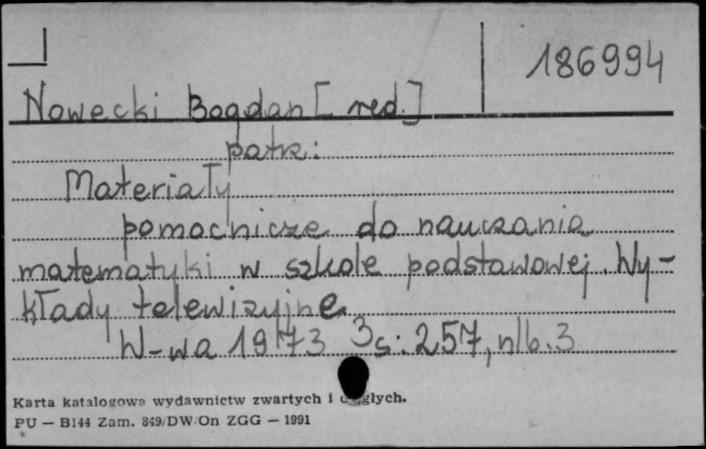 186994
Nowecki Bogdan [red.]
patrz:
Materiały
pomocnicze do nauczania
matematyki w szkole podstawowej. Wy-
kłady telewizyjne.
W-wa 1973 s. 257, nlb. 3
Karta katalogowa wydawnictw zwartych i ciągłych.
PU — B144 Zam. 849/DW/On ZGG — 1991